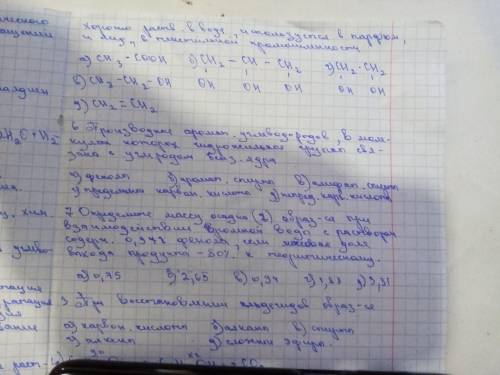 ческого
Хорошо раств. в воде, используется в парфюм.
ащений
и мед., в текстильной промышленности
а) CH₃ - COOH б) CH₂ - CH - CH₂ г) CH₂ - CH₂
OH OH OH OH OH
в) CH₃ - CH₂ - OH
д) CH₂ = CH₂
6. Производные аромат. углеводородов, в моле-
кулах которых гидроксильная группа свя-
зана с углеродом бенз. ядра
а) фенолы б) аромат. спирты в) алифат. спирты
г) предельная карбон. кислота д) непред. карб. кислота
7. Определите массу осадка (г) образ-ся при
взаимодействии бромной воды с раствором
содерж. 0,94г фенола, если массовая доля
выхода продукта - 80% к теоритическому.
а) 0,75 б) 2,65 в) 0,94 г) 1,88 д) 3,31
При восстановлении альдегидов образ-ся
а) карбон. кислоты б) алканы в) спирты
г) алкены д) сложные эфиры